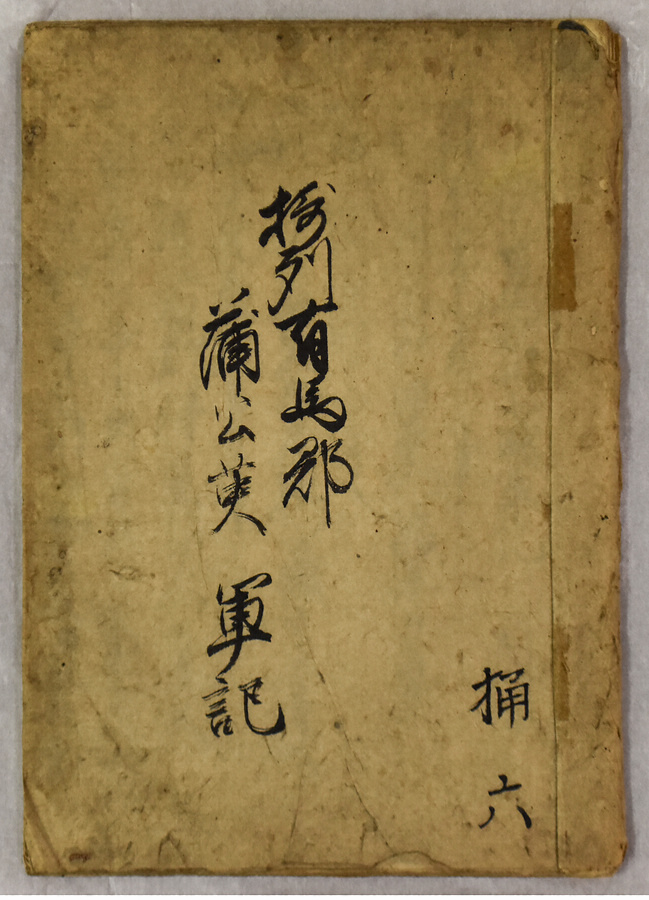 桶 六
摂州有馬郡
蒲公英 軍記